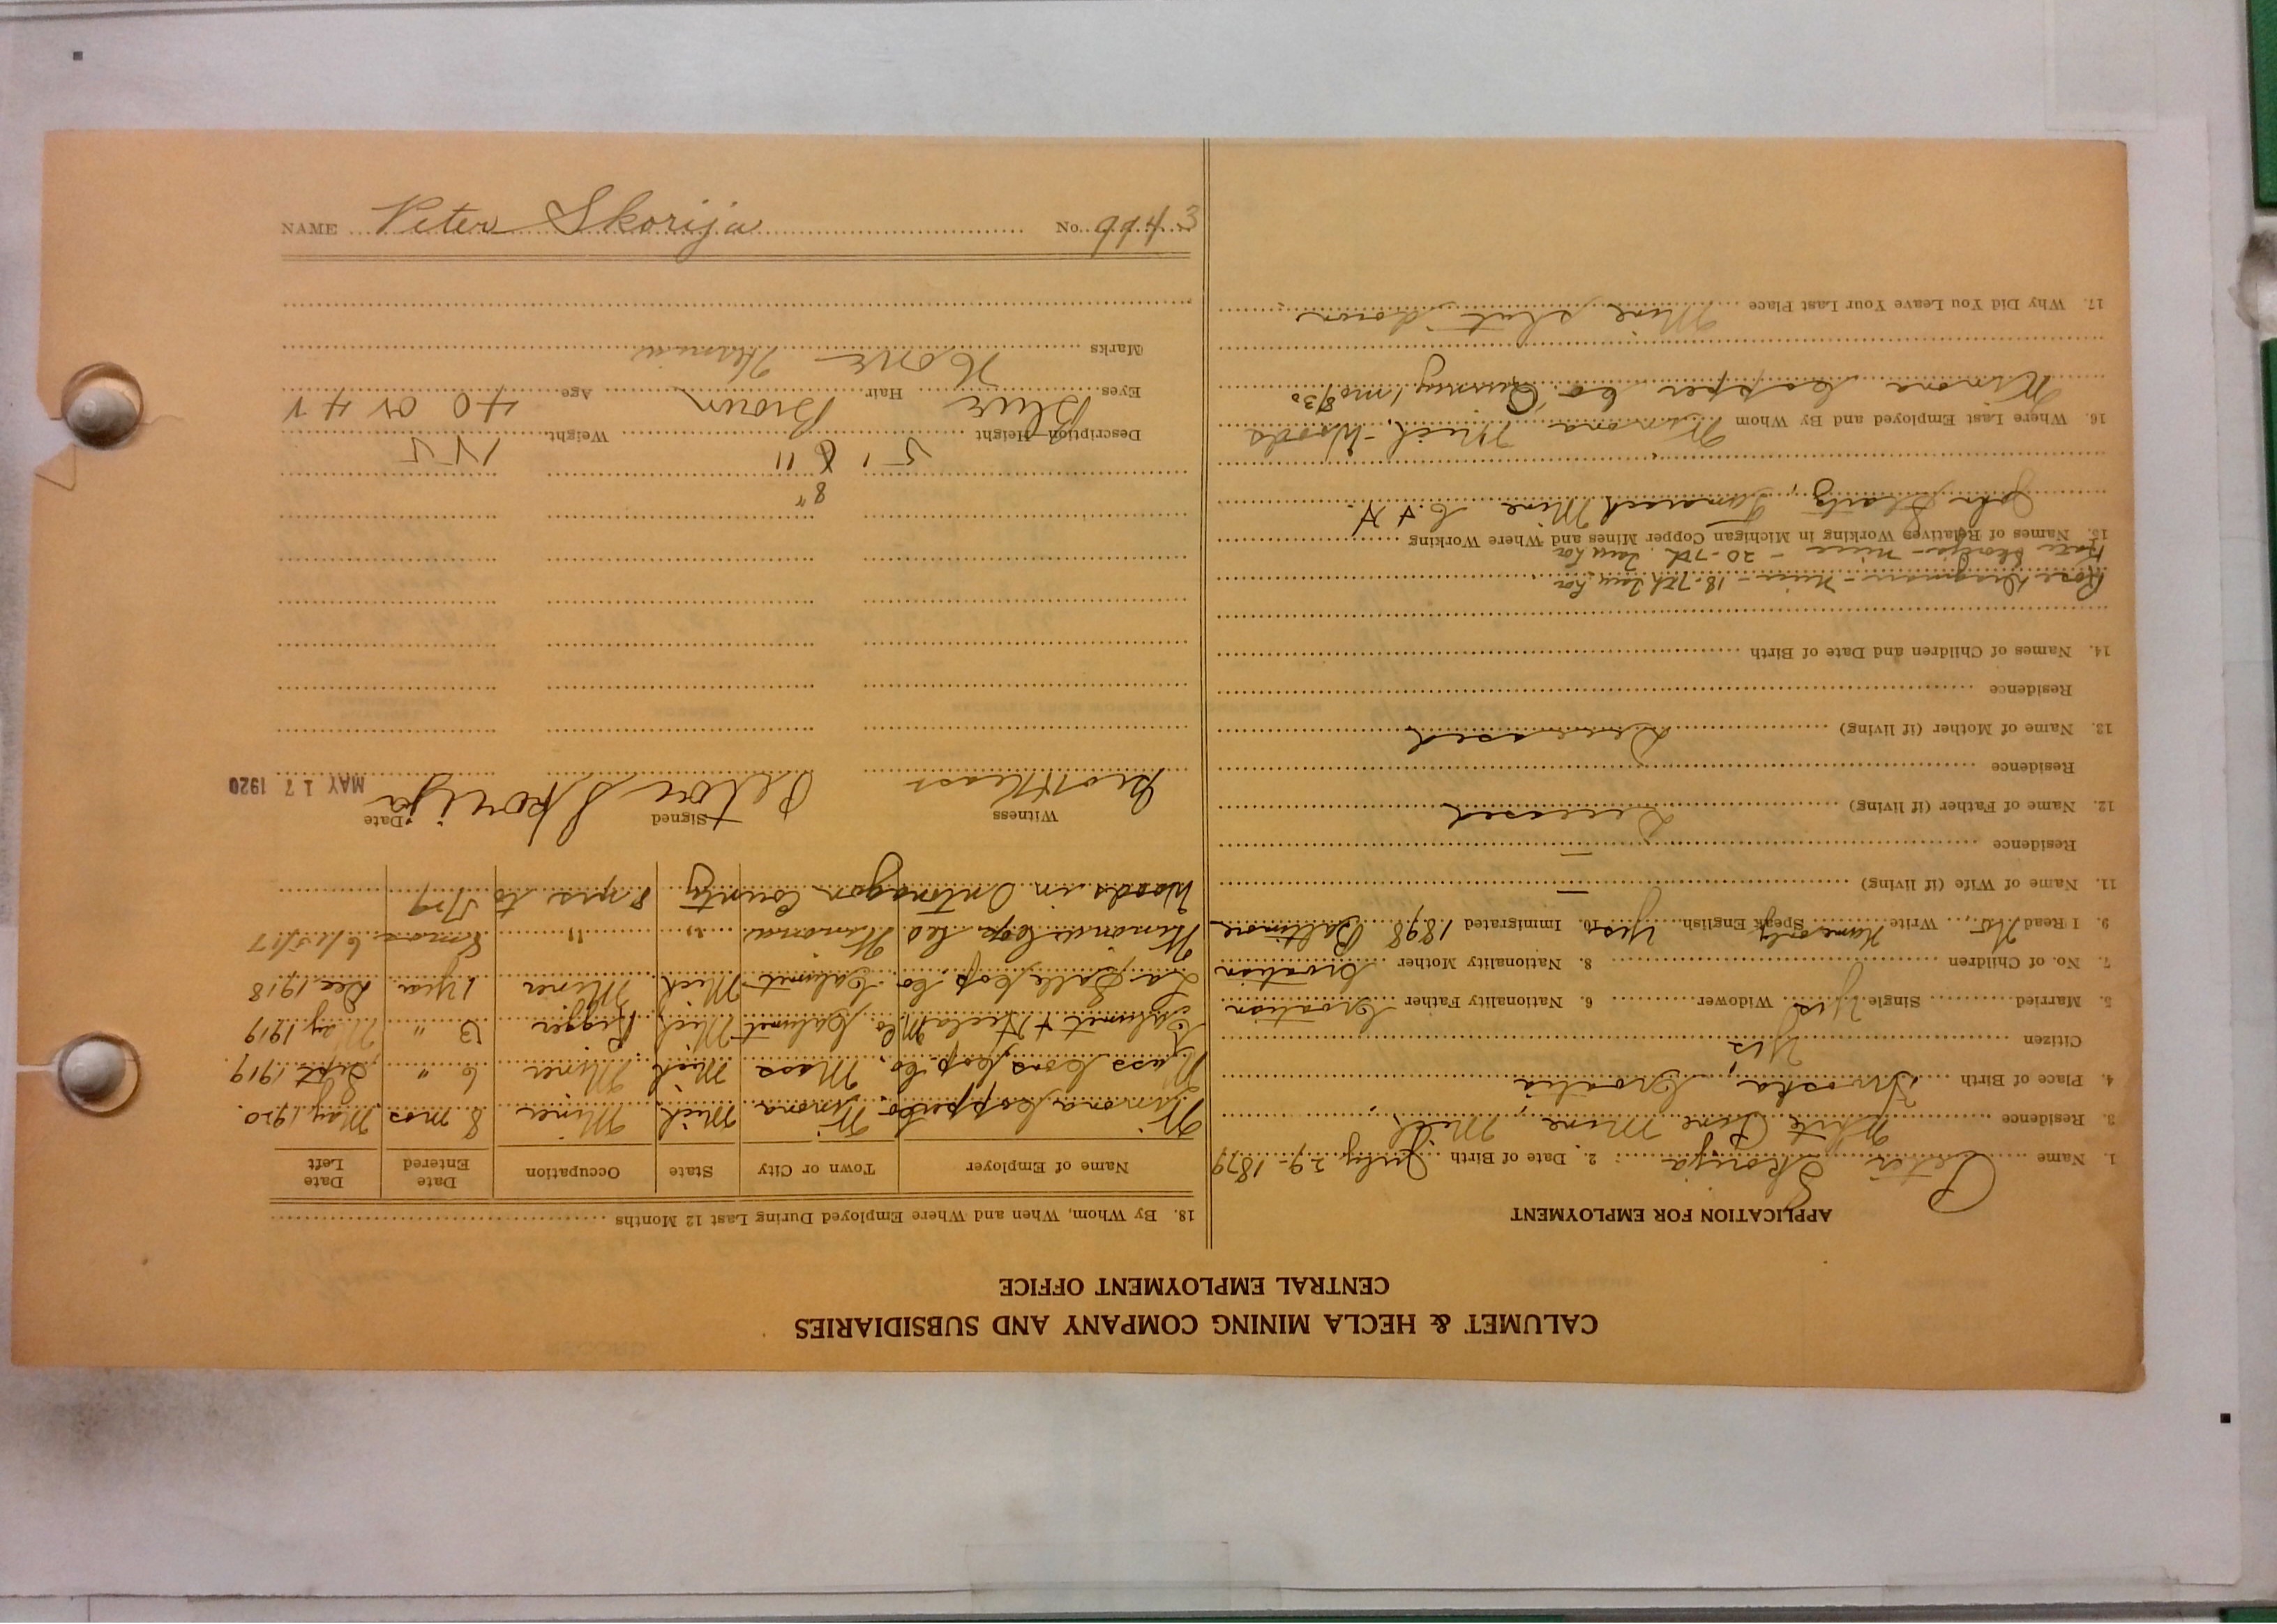 CALUMET & HECLA MINING COMPANY AND SUBSIDIARIES
CENTRAL EMPLOYMENT OFFICE
APPLICATION FOR EMPLOYMENT
1. Name Peter Skorija 2. Date of Birth July 29-1879
3. Residence White Pine Mine, Mich.
4. Place of Birth Croatia
Citizen Yes
5. Married Single Yes Widower 6. Nationality Father Croatian
7. No. of Children 8. Nationality Mother Croatian
9. I Read No. Write Name only Speak English Yes 10. Immigrated 1898 Baltimore
11. Name of Wife (if living) —
Residence —
12. Name of Father (if living) Deceased
Residence
13. Name of Mother (if living) Deceased
Residence
14. Names of Children and Date of Birth
Rose - Niece - 18-7th
Kate Skorija - niece - 20-7th
15. Names of Relatives Working in Michigan Copper Mines and Where Working
John Tamarack Mine C. & H.
16. Where Last Employed and By Whom Winona Mich. - Woods
Winona Copper Co. Quincy 1 mo 8/30
17. Why Did You Leave Your Last Place Mine shut down
18. By Whom, When and Where Employed During Last 12 Months
Name of Employer Town or City State Occupation Date Entered Date Left
Winona Copper Co Winona Mich Miner 8 mos May, 1920.
Mass Cons Cop. Co. Mass Mich Miner 6 " Sept. 1919.
Calumet & Hecla M. Co. Calumet Mich Rigger 3 " May 1919
La Salle Cop. Co. Calumet Mich Miner 1 year Dec. 1918
Winona Cop Co Winona " " 8 mos 6/15/17
Woods in Ontonagon County 8 yrs to 1/19
Witness Signed Date
Peter Skorija MAY 17 1920
8"
5 ' 6 " 155
Description—Height Weight
Eyes Blue Hair Brown Age 40 or 41
Marks None
NAME Peter Skorija No. 9943